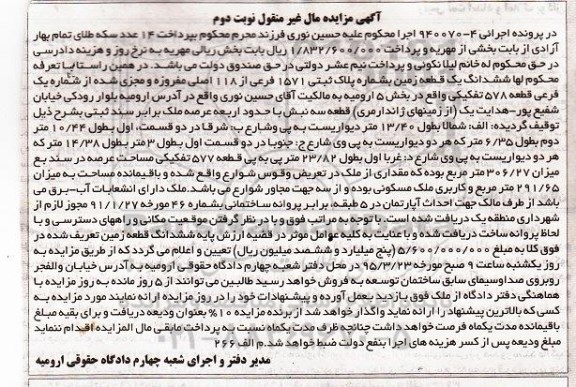 آگهی مزایده مال غیر منقول نوبت دوم
در پرونده اجرائی ۴-۹۴۰۰۷۰ اجرا محکوم علیه حسین نوری فرزند محرم محکوم بپرداخت ۱۴ عدد سکه طلای تمام بهار
آزادی از بابت بخشی از مهریه و پرداخت ۱/۸۳۲/۶۰۰/۰۰۰ ریال بابت بخش ریالی مهریه به نرخ روز و هزینه دادرسی
در حق محکوم له خانم لیلا نکونی و پرداخت نیم عشر دولتی در حق صندوق دولت می باشد. در همین راستا با تعرفه
محکوم لها ششدانگ یک قطعه زمین بشماره پلاک ثبتی ۱۵۷۱ فرعی از ۱۱۸ اصلی مفروزه و مجزی شده از شماره یک
فرعی قطعه ۵۷۸ تفکیکی واقع در بخش ۵ ارومیه به مالکیت آقای حسین نوری واقع در آدرس ارومیه بلوار رودکی خیابان
شفیع پور-هدایت یک (زمینهای ژاندارمری) قطعه سه نبش با حدود اربعه عرصه ملک برابر سند ثبتی بشرح ذیل
توقیف گردیده: الف: شمالا بطول ۱۳/۴۰ متر دیواریست به پی وشارع ب: شرقا در دو قسمت، اول بطول ۱۰/۴۴ متر
دوم بطول ۶/۳۵ متر که هر دو دیواریست به پی وی شارع ج: جنوبا در دو قسمت اول بطول ۳ متر بطول ۱۴/۳۸ متر که
هر دو دیواریست به پی وی شارع د: غربا اول بطول ۲۳/۸۲ متر پی به پی قطعه ۵۷۷ تفکیکی مساحت عرصه در سند بع
میزان ۳۰۶/۲۷ متر مربع بوده که مقداری از ملک در تعریض وقوس شوارع واقع شده و باقیمانده مساحت به میزان
۲۹۱/۶۵ متر مربع و کاربری ملک مسکونی بوده و از سه جهت مجاور شوارع می باشد. ملک دارای انشعابات آب-برق می
باشد از طرف مالک جهت احداث آپارتمان در ۵ طبقه، برابر پروانه ساختمانی بشماره ۴۶ مورخه ۹۱/۱/۲۷ مجوز لازم از
شهرداری منطقه یک دریافت شده است. با توجه به مراتب فوق و با در نظر گرفتن موقعیت مکانی و راههای دسترسی و با
لحاظ پروانه ساخت دریافت شده و با عنایت به کلیه عوامل موثر در قضیه ارزش پایه ششدانگ قطعه زمین تعریف شده در
فوق کلا به مبلغ ۵/۶۰۰/۰۰۰/۰۰۰ (پنج میلیارد و ششصد میلیون ریال) تعیین و اعلام می گردد که از طریق مزایده به
روز یکشنبه ساعت ۹ صبح مورخه ۹۵/۳/۲۳ در محل دفتر شعبه چهارم دادگاه حقوقی ارومیه به آدرس خیابان والفجر
روبروی صداوسیمای سابق ساختمان توسعه به فروش خواهد رسید طالبین می توانند از ۵ روز مانده به روز مزایده با
هماهنگی دفتر دادگاه از ملک فوق بازدید بعمل آورده و پیشنهادات خود را در روز مزایده ارائه نمایند مورد مزایده به
کسی که بالاترین پیشنهاد را ارائه نماید واگذار خواهد شد از برنده مزایده ۱۰% بعنوان ودیعه دریافت و برای بقیه مبلغ
باقیمانده مدت یکماه فرصت خواهد داشت چنانچه ظرف مدت یکماه نسبت به پرداخت مابقی مال المزایده اقدام ننماید
مبلغ ودیعه پس از کسر هزینه های اجرا بنفع دولت ضبط خواهد شد. م الف ۲۶۶
مدیر دفتر و اجرای شعبه چهارم دادگاه حقوقی ارومیه